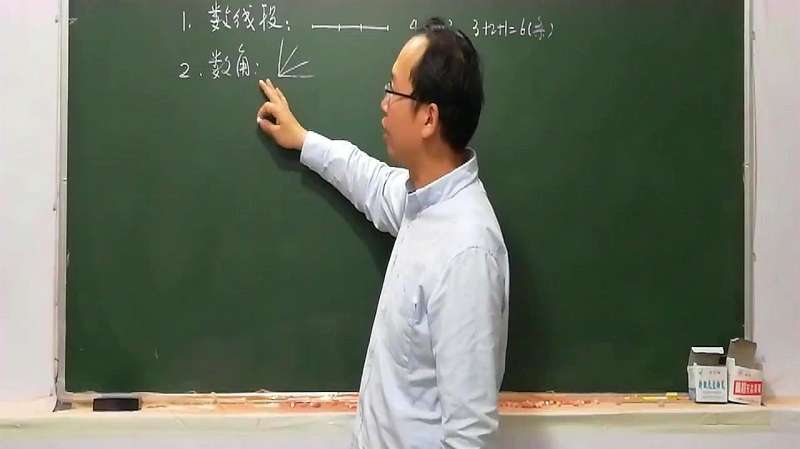 1. 数线段: 3+2+1=6(条)
2. 数角: